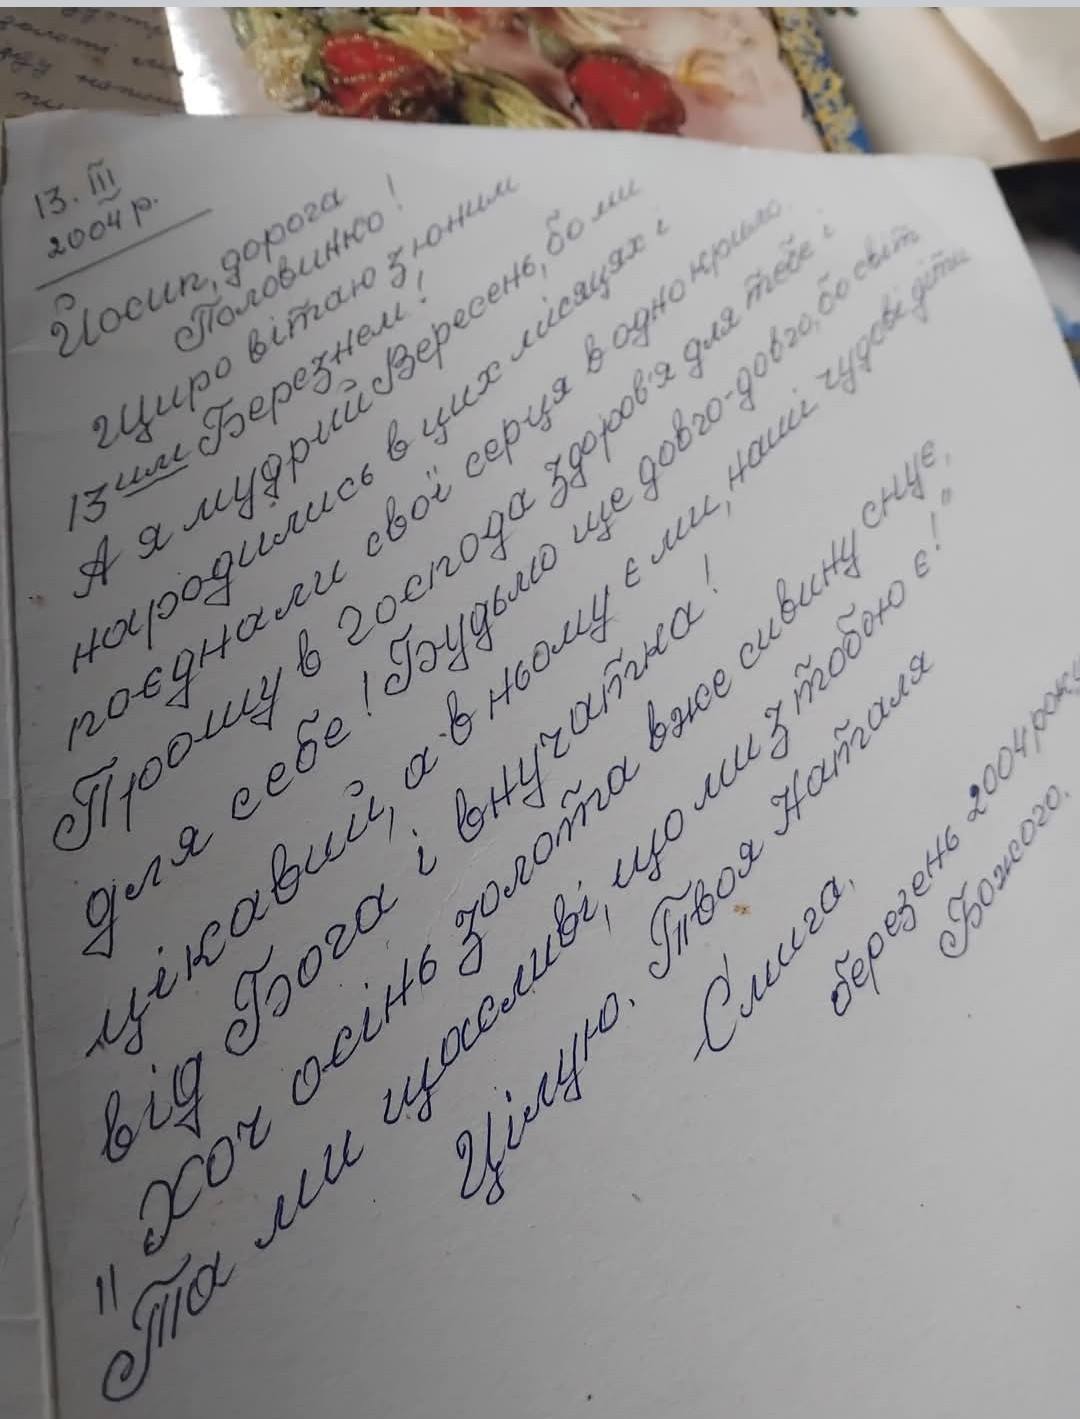 13. III
2004 р.
Йосип, дорога
Половинко!
Щиро вітаю з юним
13им Березнем!
А я мудрий Вересень, бо ми
народились в цих місяцях і
поєднали свої серця в одно крило.
Прошу в Господа здоров'я для тебе і
для себе! Будьмо ще довго-довго, бо світ
цікавий, а в ньому є ми, наші чудові діти
від Бога і внучатка!
"Хоч осінь золота вже сивину снує,
Та ми щасливі, що ми з тобою є!"
Цілую. Твоя Наталя
Слига.
березень 2004 року
Божого.